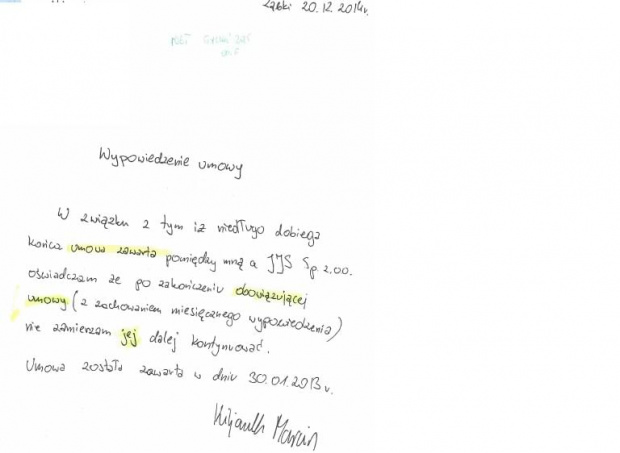 Ząbki 20.12.2014r.
Wypowiedzenie umowy
W związku z tym iż niedługo dobiega
końca umowa zawarta pomiędzy mną a JJS Sp z.oo.
oświadczam że po zakończeniu obowiązującej
umowy (z zachowaniem miesięcznego wypowiedzenia)
nie zamierzam jej dalej kontynuować.
Umowa została zawarta w dniu 30.01.2013r.
Marcin